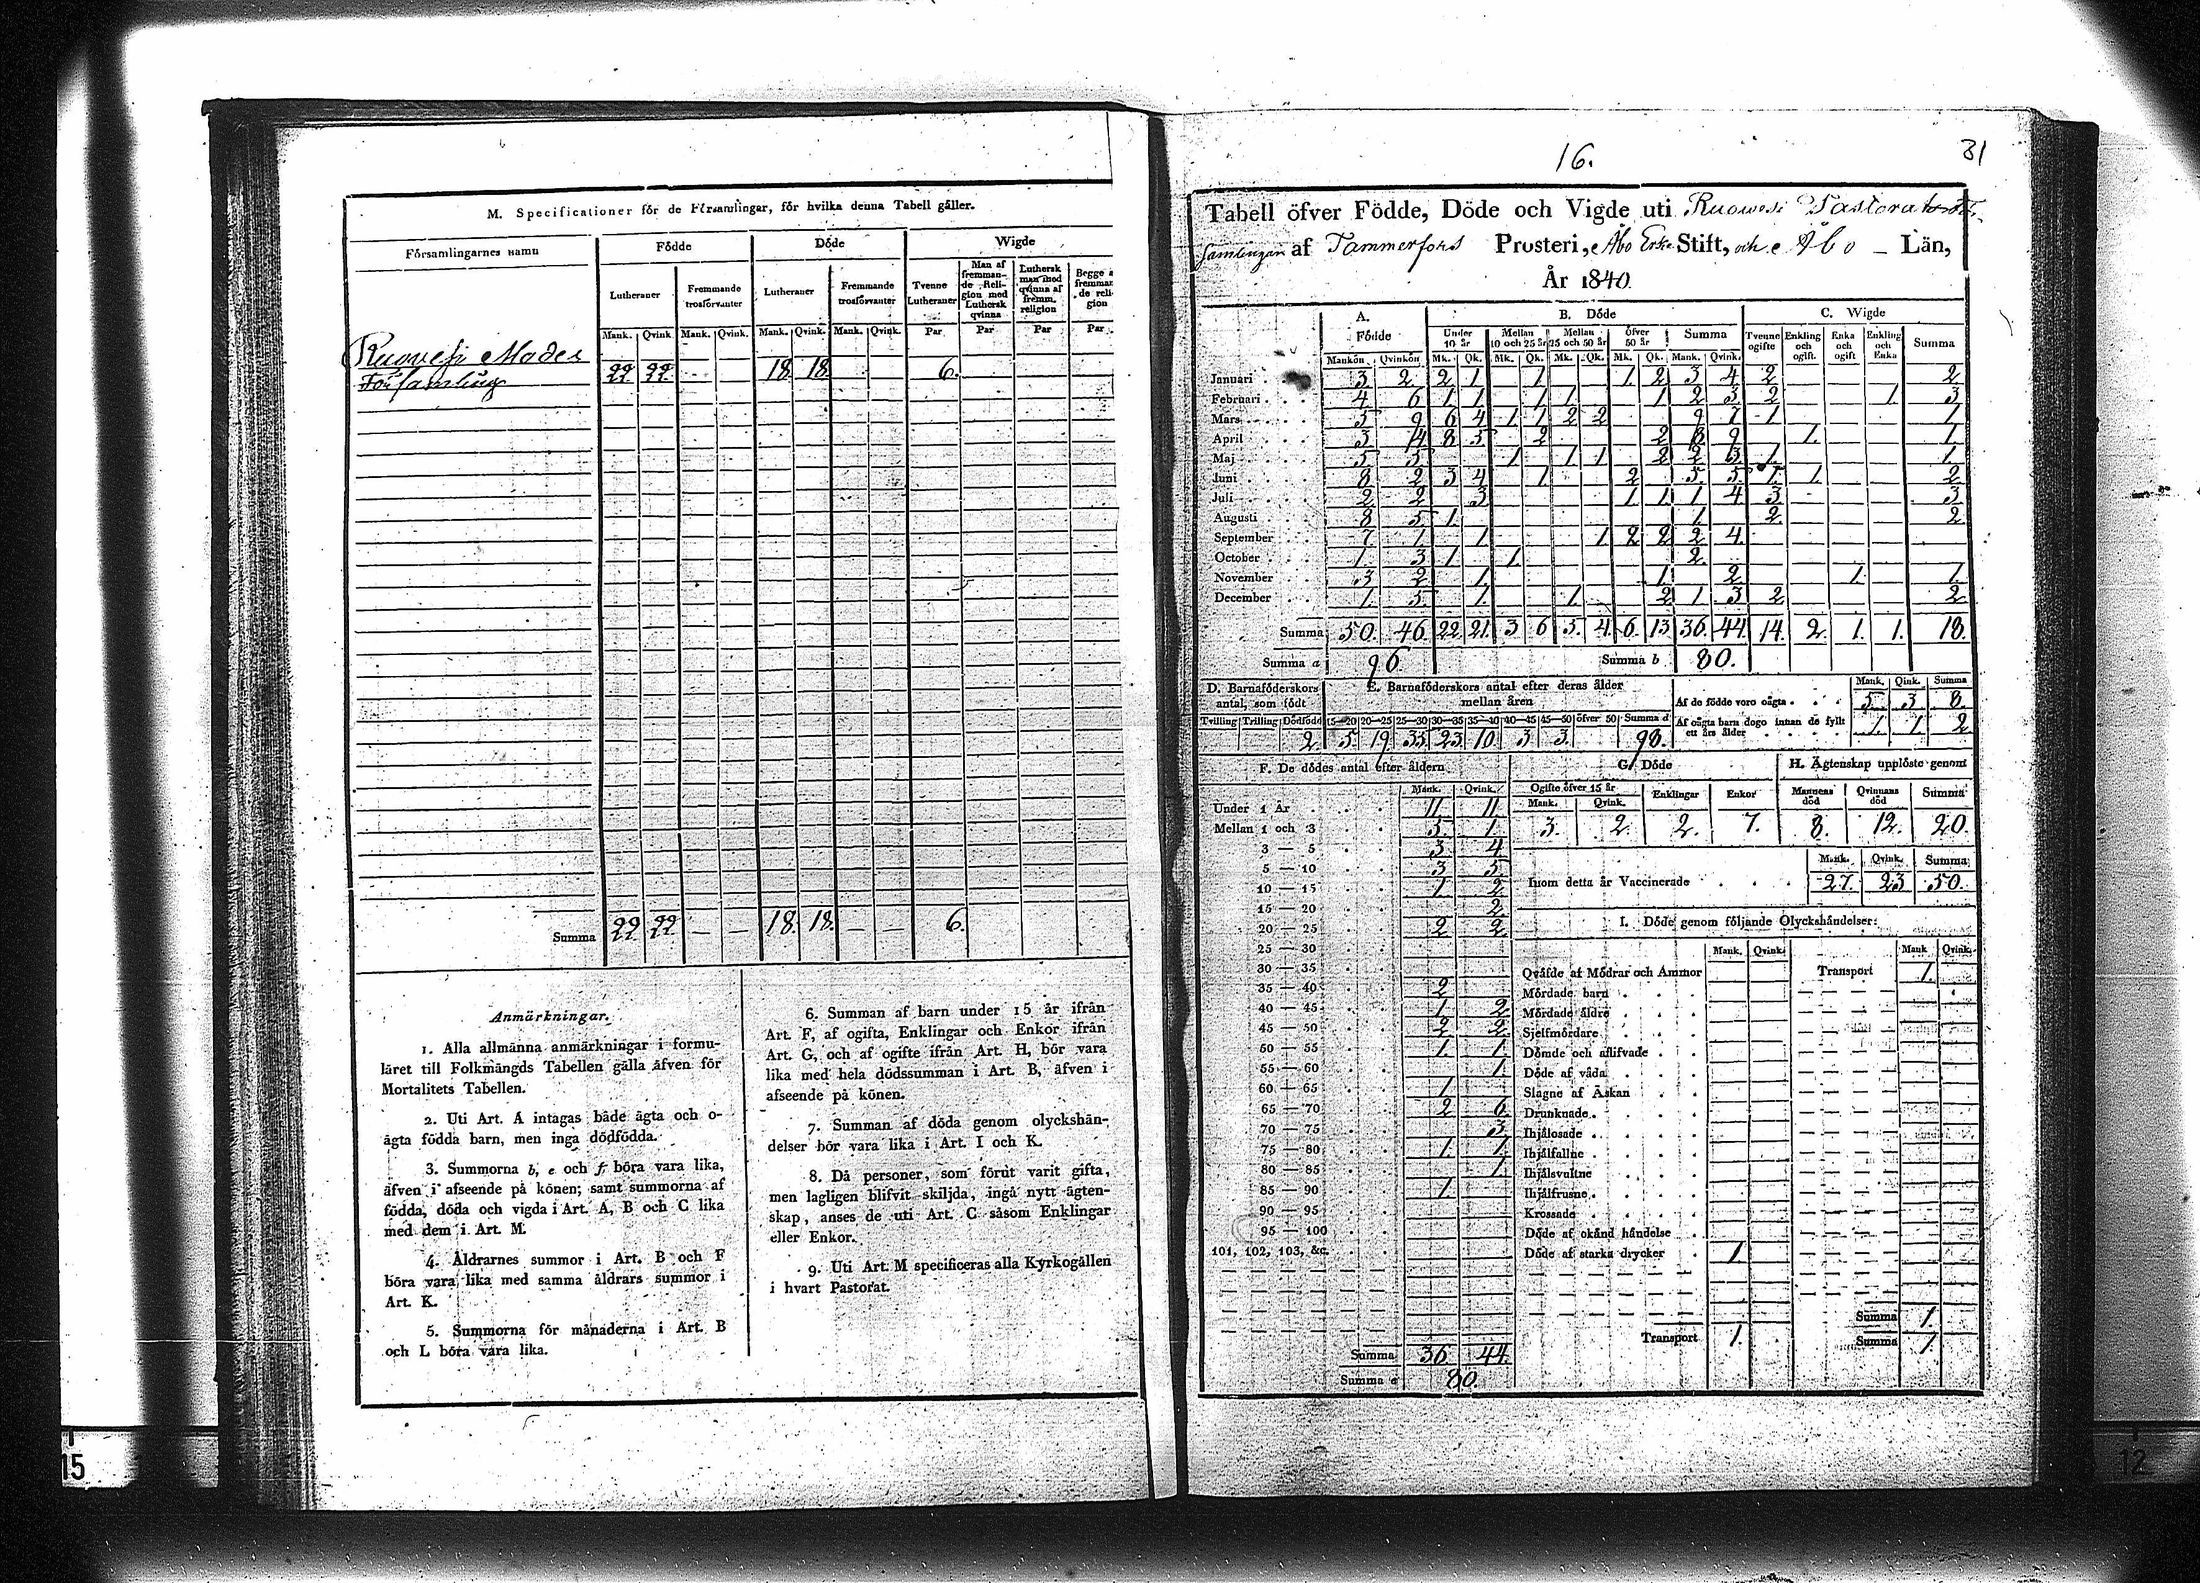 M. Specificationer för de Församlingar, för hvilka denna Tabell gäller.
Församlingarnes namn
Födde
Döde
Wigde
Lutheraner
Fremmande trosförvanter
Lutheraner
Fremmande trosförvanter
Tvenne Lutheraner
Man af fremmande Religion med Luthersk qvinna
Luthersk man med qvinna af fremm. religion
Mank. Qvink. Mank. Qvink. Mank. Qvink. Mank. Qvink. Par Par Par Par
Ruovesi Moder
Församling 22 22 18 18 6.
Summa 22 22 — — 18 18. — — 6.
Anmärkningar.
1. Alla allmänna anmärkningar i formu-
läret till Folkmängds Tabellen gälla äfven för
Mortalitets Tabellen.
2. Uti Art. A intagas både ägta och o-
ägta födda barn, men inga dödfödda.
3. Summorna b, e och f böra vara lika,
äfven i afseende på könen; samt summorna af
födda, döda och vigda i Art. A, B och C lika
med dem i Art. M.
4. Åldrarnes summor i Art. B och F
böra vara lika med samma åldrars summor i
Art. K.
5. Summorna för månaderna i Art. B
och L böra vara lika.
6. Summan af barn under 15 år ifrån
Art. F, af ogifta, Enklingar och Enkor ifrån
Art. G, och af ogifte ifrån Art. H, bör vara
lika med hela dödssumman i Art. B, äfven i
afseende på könen.
7. Summan af döda genom olyckshän-
delser bör vara lika i Art. I och K.
8. Då personer, som förut varit gifta,
men lagligen blifvit skiljda, ingå nytt ägten-
skap, anses de uti Art. C såsom Enklingar
eller Enkor.
9. Uti Art. M specificeras alla Kyrkogällen
i hvart Pastorat.
16.
31
Tabell öfver Födde, Döde och Vigde uti Ruowesi
samlingen af Tammerfors Prosteri, Åbo Erke Stift, och Åbo — Län,
År 1840.
A. Födde
B. Döde
C. Wigde
Under 10 år
Mellan 10 och 25 år
Mellan 25 och 50 år
öfver 50 år
Summa
Tvenne ogifte
Enkling och ogift.
Enka och ogift
Enkling och Enka
Summa
Mankön Qvinkön Mk. Qk. Mk. Qk. Mk. Qk. Mk. Qk. Mank. Qvink.
Januari 3 2 2 1 1 1 2 3 4 2 2
Februari 4 6 1 1 1 1 1 2 3 2 1 3
Mars 5 9 6 4 1 1 2 2 9 7 1 1
April 3 14 8 5 2 2 8 9 1. 1
Maj 5 5 1 1 1 2 2 3 1 1
Juni 8 2 3 4 1 2 5 5 1 1 2
Juli 2 2 3 1 1 1 4 3 3
Augusti 8 5 1 1 2 2
September 7 1 1 1 2 2 2 4
October 1 3 1 1 2
November 3 2 1 1 2 1 1
December 1 5 1 1 2 1 3 2 2
Summa 50. 46 22 21 3 6 5. 4 6. 13 36. 44 14. 2. 1. 1. 18.
Summa a 96. Summa b 80.
D. Barnaföderskors antal, som födt
E. Barnaföderskors antal efter deras ålder
mellan åren
Tvilling Trilling Dödfödd 15—20 20—25 25—30 30—35 35—40 40—45 45—50 öfver 50 Summa d
2. 5. 19 35 23 10 3 3. 98.
Mank. Qink. Summa
Af de födde voro oägta 5 3 8.
Af oägta barn dogo innan de fyllt ett års ålder 1 1 2
F. De dödes antal efter åldern
Mank. Qvink.
Under 1 År 11 11
Mellan 1 och 3 5 1
3 — 5 3 4
5 — 10 3 5
10 — 15 1 2
15 — 20 2
20 — 25 2 2
25 — 30
30 — 35
35 — 40 2
40 — 45 1 2
45 — 50 2 2
50 — 55 1 1
55 — 60 1
60 — 65 1
65 — 70 2 6
70 — 75 3
75 — 80 1 1
80 — 85 1
85 — 90 1
90 — 95
95 — 100
101, 102, 103, &c.
Summa 36 44
Summa e 80.
G. Döde
Ogifte öfver 15 år
Mank. Qvink.
Enklingar
Enkor
3. 2 2. 7.
H. Ägtenskap upplöste genom
Mannens död
Qvinnans död
Summa
8. 12. 20.
Mank. Qvink. Summa
Inom detta år Vaccinerade 27. 23 50.
I. Döde genom följande Olyckshändelser:
Mank. Qvink. Mank Qvink.
Qväfde af Mödrar och Ammor Transport 1.
Mördade barn
Mördade äldre
Sjelfmördare
Dömde och aflifvade
Döde af våda
Slagne af Åskan
Drunknade
Ihjälosade
Ihjälfallne
Ihjälsvultne
Ihjälfrusne
Krossade
Döde af okänd händelse
Döde af starka drycker 1.
Transport 1.
Summa 1.
Summa 1.
15
12